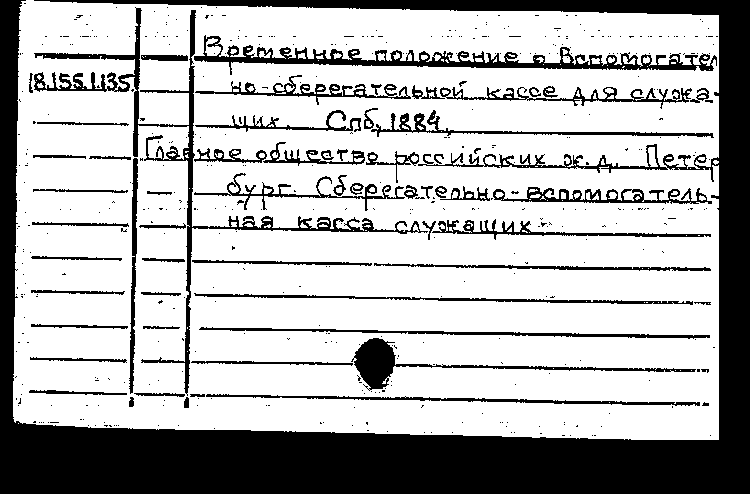 Временное положение о Вспомогател
18.155.1.135
но-сберегательной кассе для служа-
щих. Спб, 1884.
Главное общество российских ж.д. Петер
бург. Сберегательно-вспомогатель-
ная касса служащих